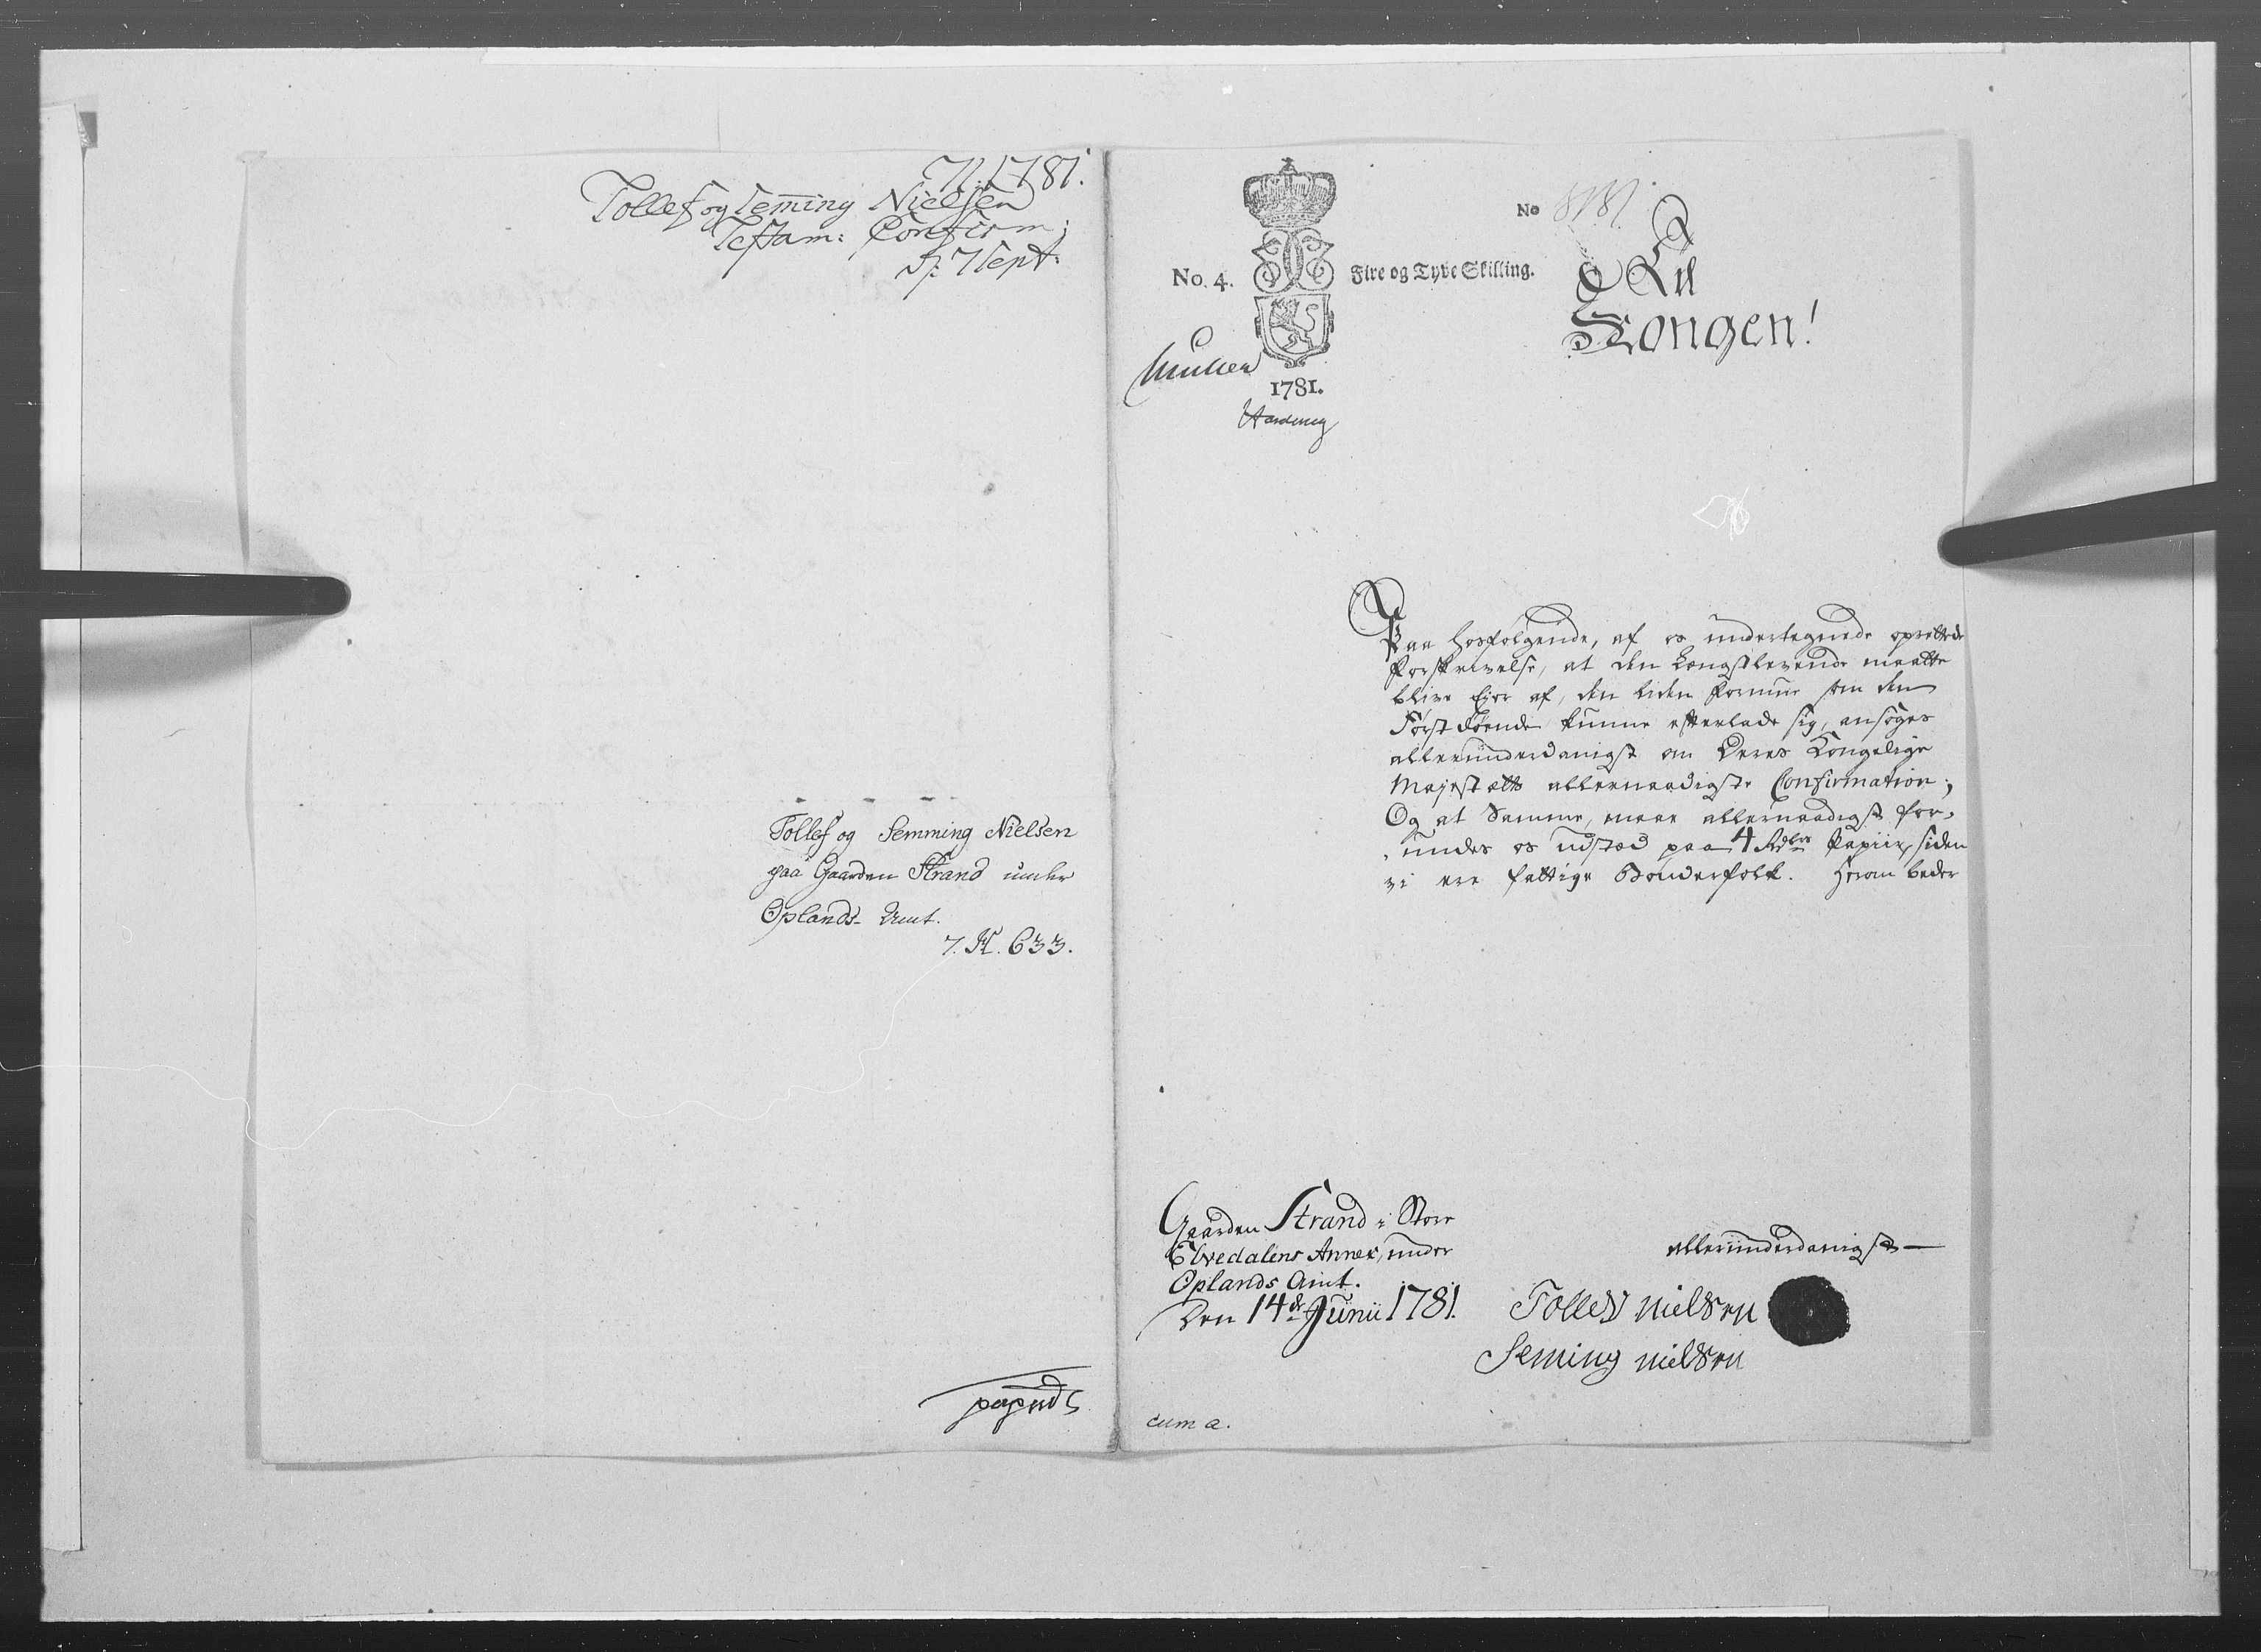 N. 1781.
Tollef og Semīng Nielsen
Testam: Confirm:
S: 7 Sept:
Tollef og Semming Nielsen
paa Gaarden Strand under
Oplands- Amt.
7. K. 633.
No
No. 4. Fire og Tyve Skilling.
1781.
Til
Kongen!
Paa hosfølgende, af os undertegnede oprettede
Forskrivelse, at den Længstlevende maatte
blive Eier af, den liden Formue som den
Første Døende kunne efterlade sig, ansøges
allerunderdanigst om Deres Kongelige
Majestætts allernaadigste Confirmation;
Og at Samme, maae allernaadigst for-
undes os udstæd paa 4 Rdlrs Papiir, siden
vi ere fattige Bonderfolk. Herom beder
Gaarden Strand i Store
Elvedalens Annex, under
Oplands Amt.
Den 14de Junii 1781.
allerunderdanigst
Tollef Nielsen
Seming Nielsen
cum a.